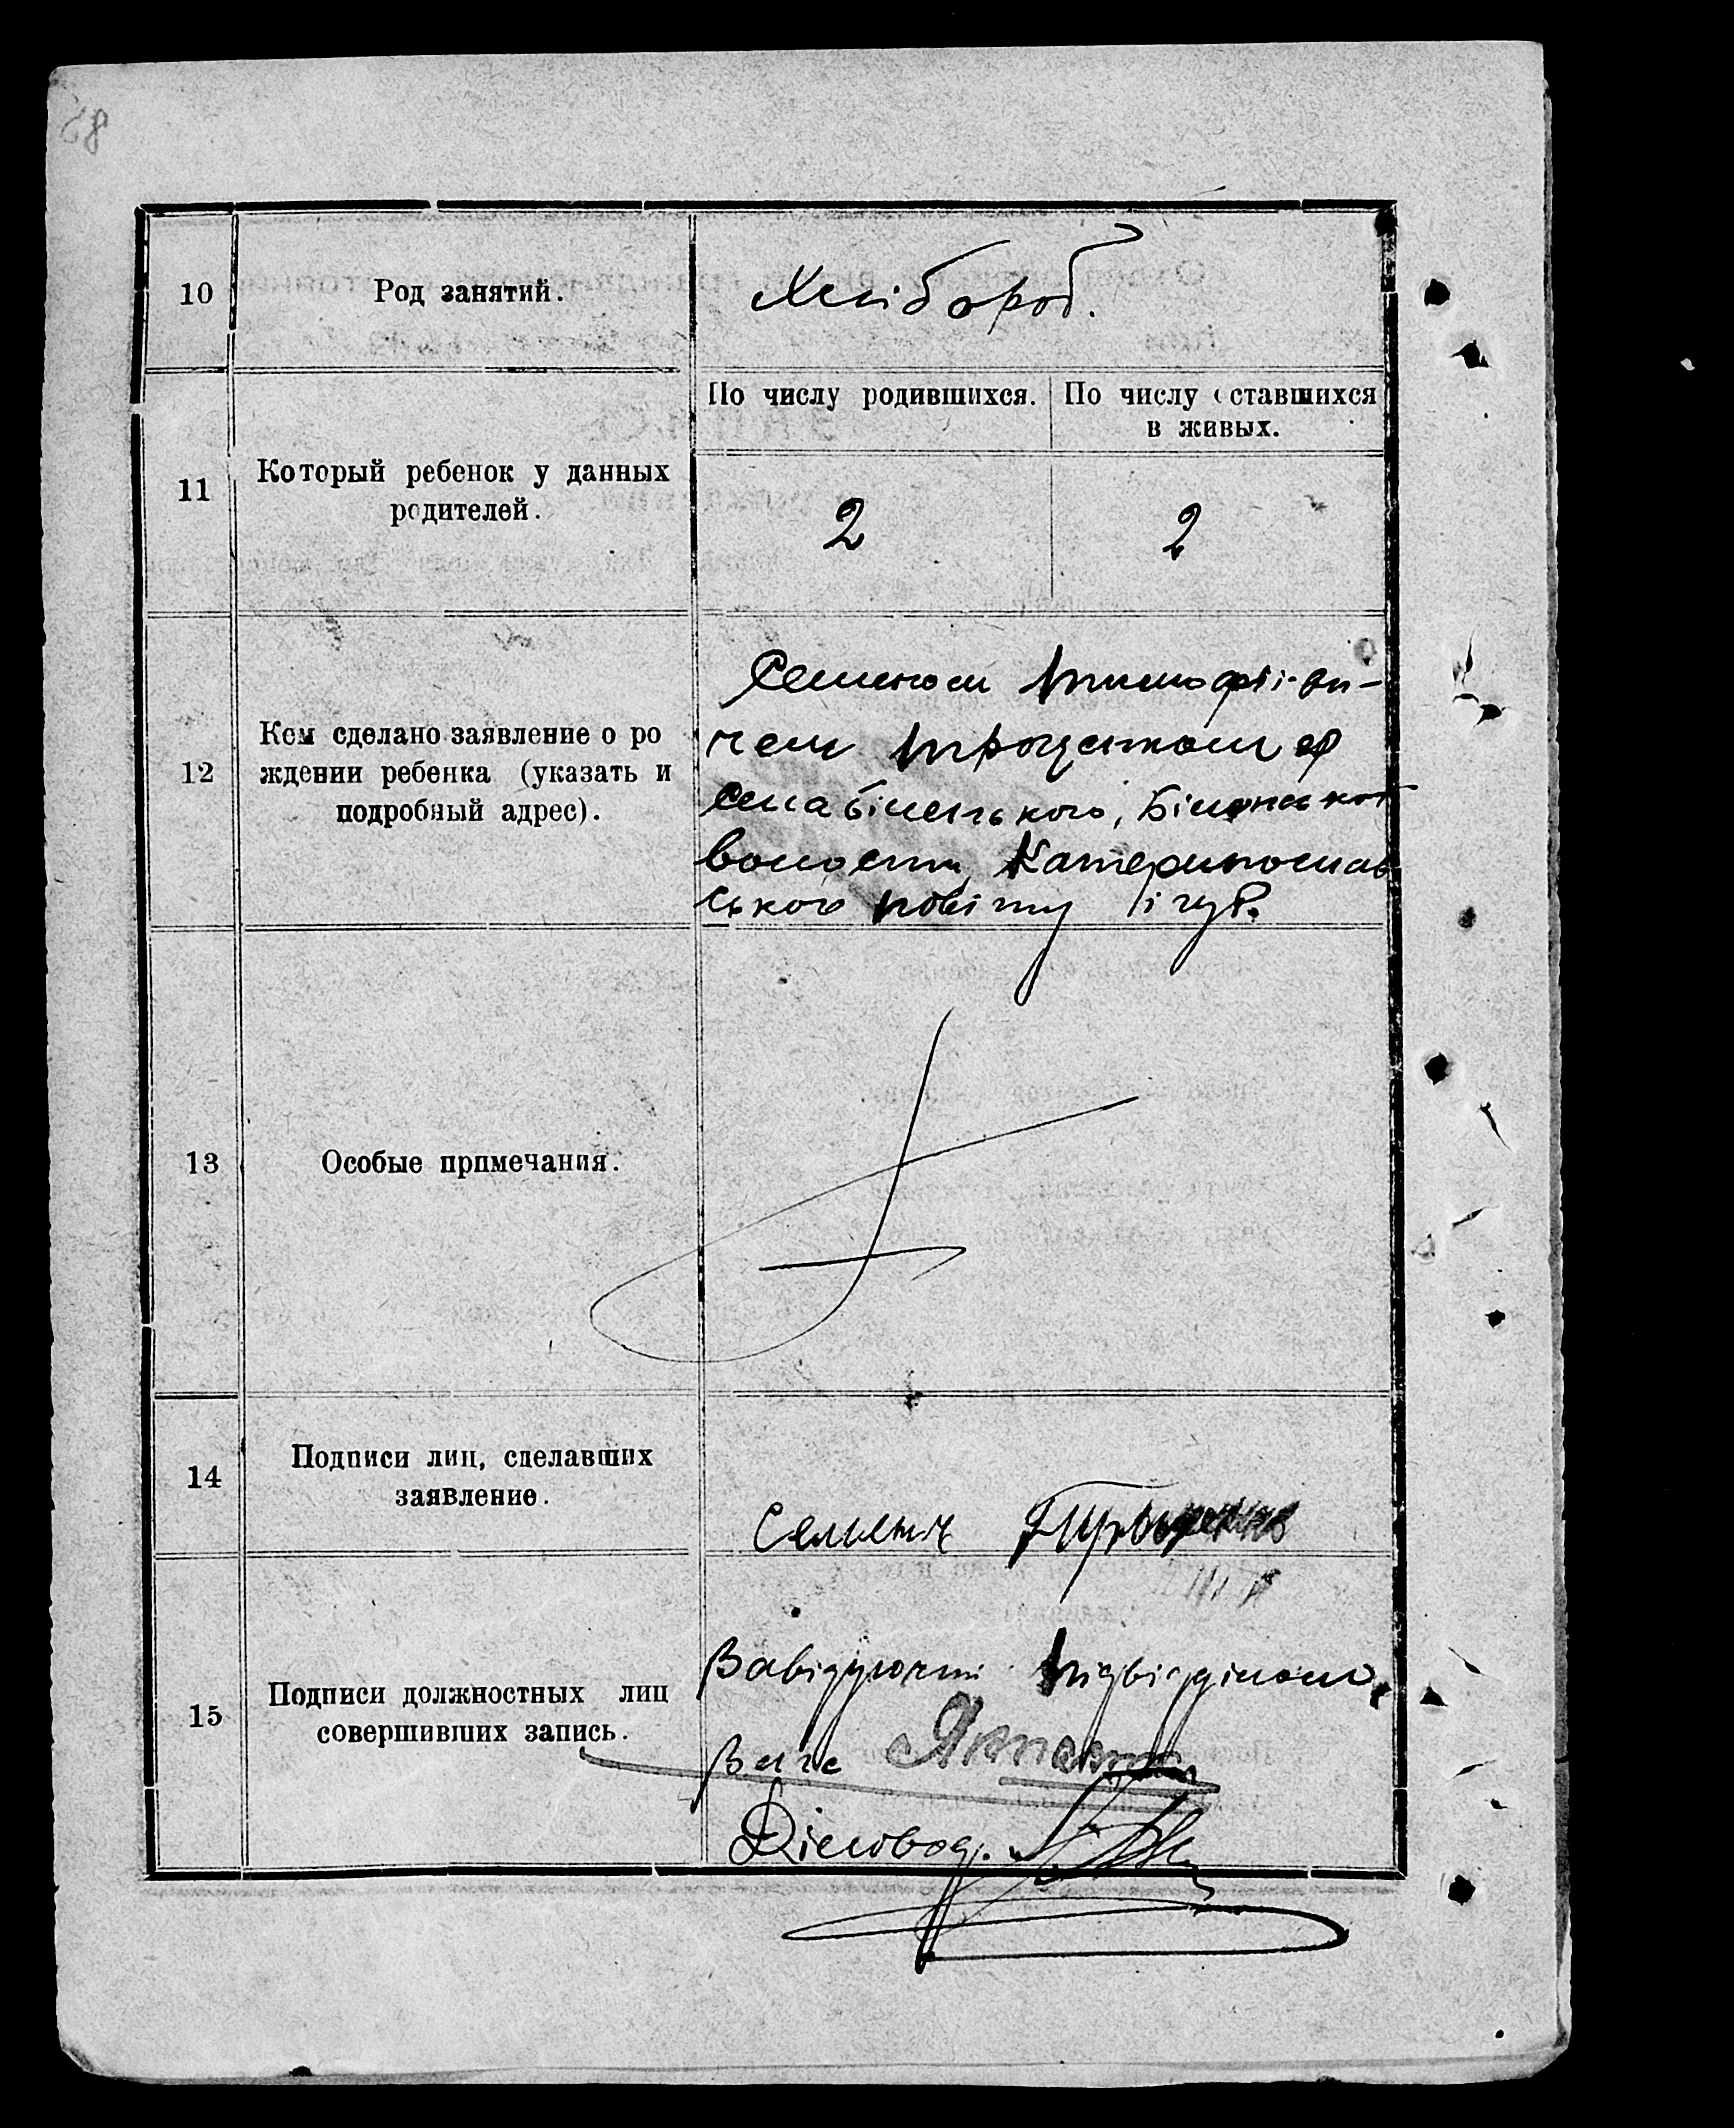 10
Род занятий.
Хлібороб.
11
Который ребенок у данных
родителей.
По числу родившихся.
По числу оставшихся
в живых.
2
2
12
Кем сделано заявление о ро
ждении ребенка (указать и
подробный адрес).
Семеном Тимофієви-
чем
села Біленького, Біленської
волости, Катеринослав
ського повіту і губ.
13
Особые примечания.
14
Подписи лиц, сделавших
заявление.
Семень
15
Подписи должностных лиц
совершивших запись.
Завідуючий підвідділом
Загс
Діловод.